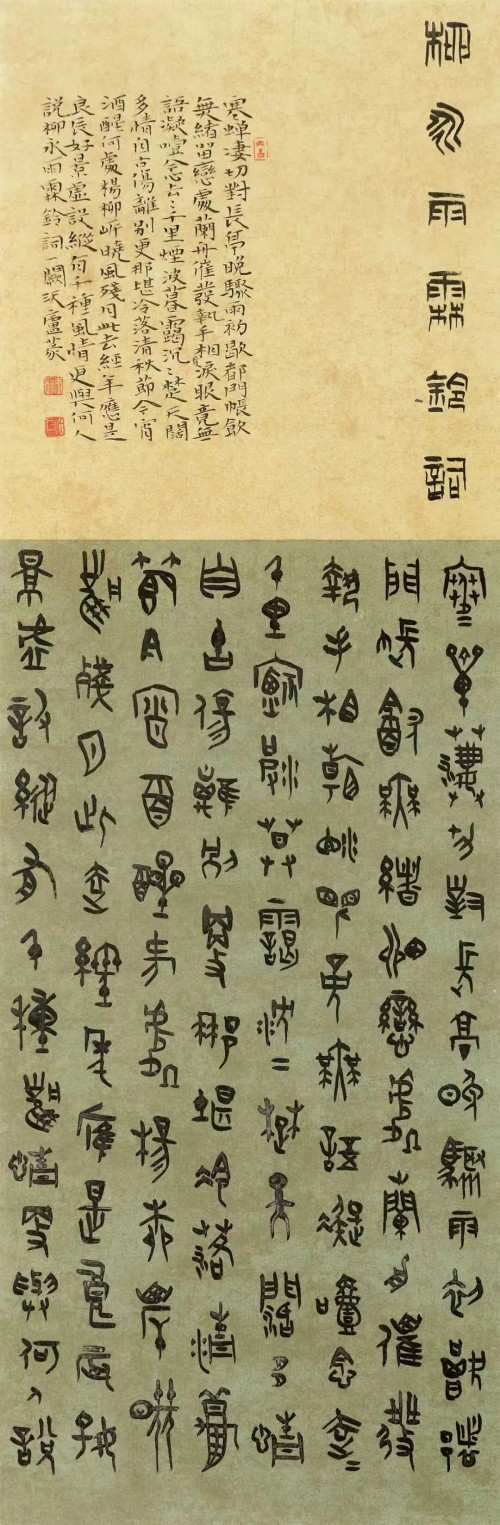 柳永雨霖鈴詞
寒蟬淒切對長亭晚驟雨初歇都門帳飲
無緒留戀處蘭舟催發執手相淚眼竟無
語凝噎念去〻千里煙波暮靄沉〻楚天闊
多情自古傷離別更那堪冷落清秋節今宵
酒醒何處楊柳岸曉風殘月此去經年應是
良辰好景虛設縱有千種風情更與何人
說柳永雨霖鈴詞一闋沃廬篆
寒蟬淒切對長亭晚驟雨初歇都
門帳飲無緒留戀處蘭舟催發
執手相看淚眼竟無語凝噎念去〻
千里煙波暮靄沈〻楚天闊多情
自古傷離別更那堪冷落清秋
節今宵酒醒何處楊柳岸曉
風殘月此去經年應是良辰好
景虛設縱有千種風情更與何人說